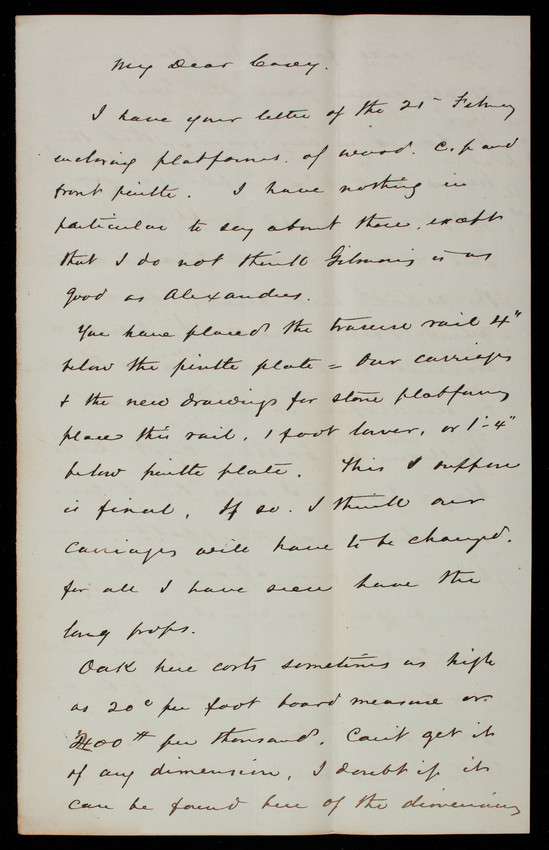 My Dear Casey.
I have your letter of the 21st Febry
enclosing platforms. of wood. c. p and
front pintle. I have nothing in
particular to say about these, except
that I do not think Gilmore's is as
good as Alexanders.
You have placed the traverse rail 4"
below the pintle plate = Our carriages
& the new drawings for stone platforms
place this rail, 1 foot lower, or 1'-4"
below pintle plate. This I suppose
is final, If so. I think our
carriages will have to be changed.
for all I have seen have the
long props.
Oak here costs sometimes as high
as 20c per foot board measure or
per thousand. Can't get it
of any dimension, I doubt if it
can be found here of the dimensions